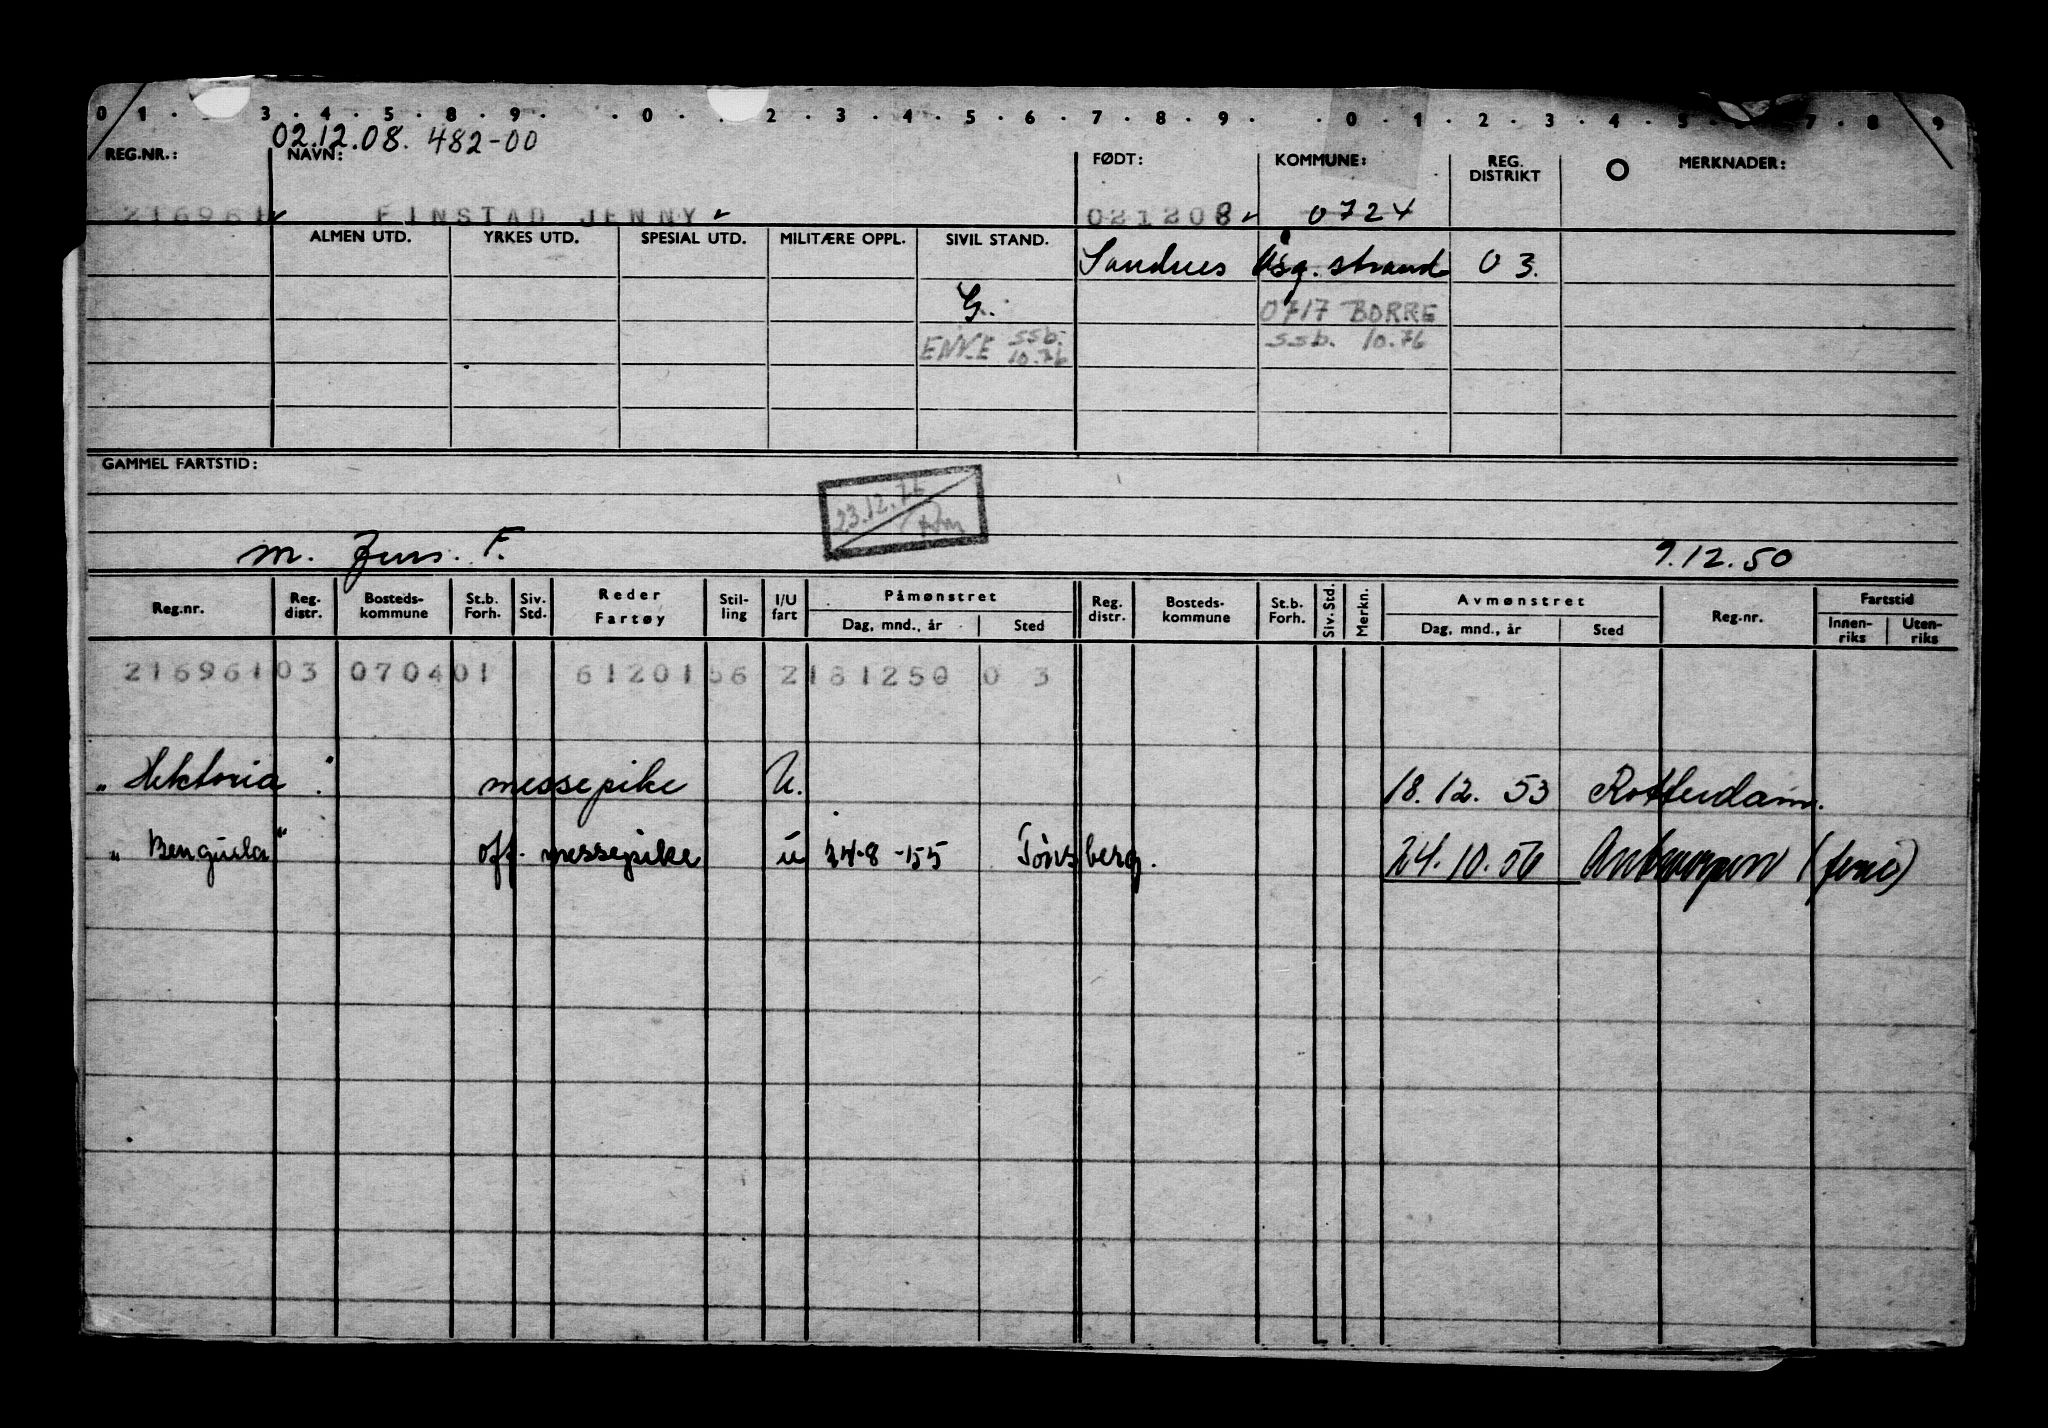 0 1 . 3 . 4 . 5 . 8 . 9 . . 0 . . 2 . 3 . 4 . 5 . 6 . 7 . 8 . 9 . . 0 . 1 . 2 . 3 . 4 . 5 . 6 . 7 . 8 . 9
02.12.08. 482-00
REG.NR.: NAVN: FØDT: KOMMUNE: REG. DISTRIKT O MERKNADER:
216961 FINSTAD JENNY 021208 0724
ALMEN UTD. YRKES UTD. SPESIAL UTD. MILITÆRE OPPL. SIVIL STAND. Sandnes Åsg. strand 03.
G. 0717 BORRE
ENKE ssb. 10.76 ssb. 10.76
GAMMEL FARTSTID:
23.12.76
m. Jens. F. 9.12.50
Reg.nr. Reg. distr. Bosteds-kommune St.b. Forh. Siv. Std. Reder Fartøy Stil-ling I/U fart Påmønstret Dag, mnd., år Sted Reg. distr. Bosteds-kommune St.b. Forh. Siv. Std. Merkn. Avmønstret Dag, mnd., år Sted Reg.nr. Fartstid Innen-riks Uten-riks
216961 03 0704 01 61201 56 2 181250 0 3
„Hektoria" messepike U. 18.12.53 Rotterdam.
„Benguela" off. messepike u 24-8-55 Tønsberg. 24.10.56 Antwerpen (ferie)